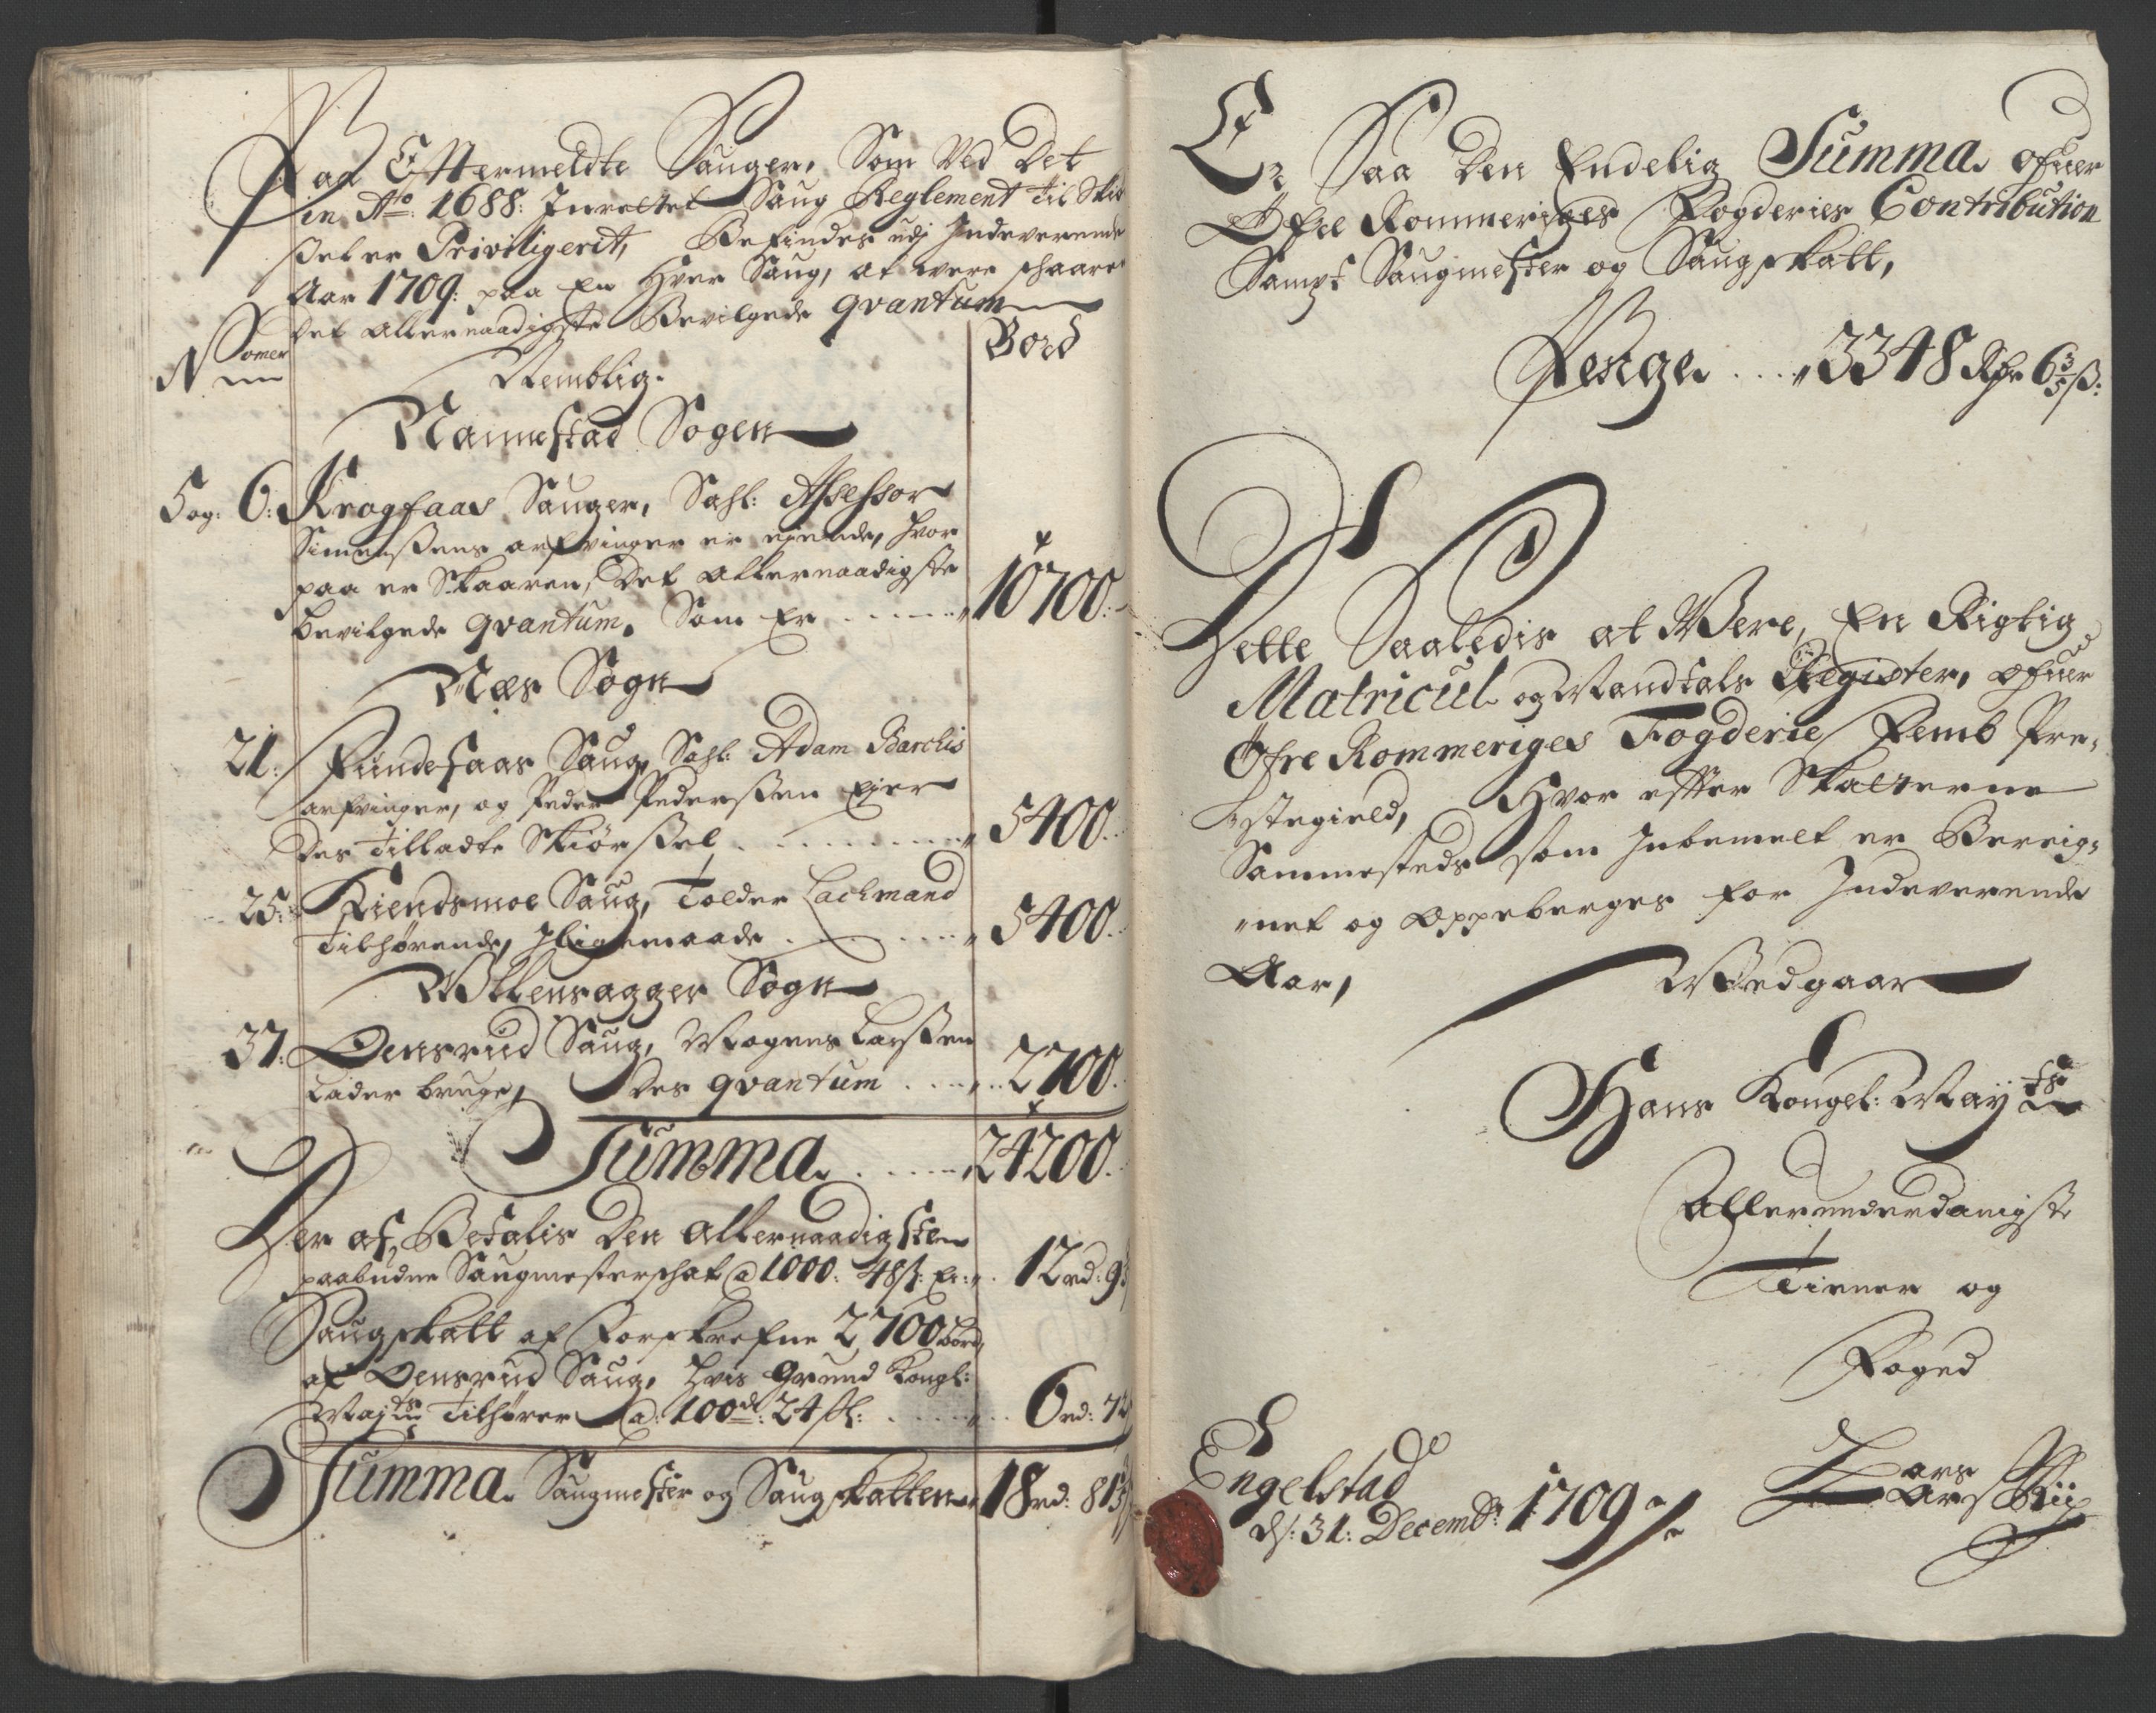 Paa Efftermeldte Sauger, Som Ved Det
in Ato: 1688: Inrettet Saug Reglement til Skib
ssel er Priviligerit, Befindes udj Indeverende
Aar 1709: paa En Hver Saug, at were schaaren
Det allernaadigste Bevilgede qvantum
Nomer
Bord
Nemblig.
Nannestad Sogen
5 og: 6: Krogfaas Sauger, Sahl: Assessor
Simenssens arfvinger er eiende, hvor
paa er Skaaren, Det allernaadigste
bevilgede qvantum. Som Er 10700:
Næs Sogn
21: Fundefaas Saug, Sahl: Adam Barchis
arfvinger, og Peder Pederssen Eier
Des tilladte Skiørssel 5400.
25: Kiendsmoe Saug, Tolder Lachmand
Tilhørende, Iligemaade 5400.
Ullensagger Sogn
37: Oensrud Saug, Mogens Larssen
Lader bruge, Des qvantum 2700.
Summa 24200.
Der af, Betalis Den Allernaadigsten
paabudne Saugmesterschat @ 1000: 48 ß: Er: 12 rd: 9
Saugskatt af Forskrefne 2700 bord,
af Oensrud Saug, hvis Grund Kongl:
Majts Tilhører @: 100de: 24 sl: 6 rd: 72
Summa Saugmester og Saugskatten 18 rd: 81
Er Saa Den Endelig Summa ofuer
Øfre Rommeriges Fogderies Contribution
Sampt Saugmester og Saugskatt,
Penge 3348 Rdr 6 3/5 ß:
Dette Saaledis at Were, En Rigtig
Matricul og Mandtals Register, ofuer
Øfre Rommeriges Fogderie Femb Pre,,
stegield, Hvor effter Skatterne
Sammesteds som Inbemelt er Bereig,,
net og Oppeberges for Indeverende
Aar, Vedgaar
Hans Kongel: Mayts
Allerunderdanigste
Tiener og
Foged
Engelstad
ds: 31: Decembr: 1709
Lars Ar